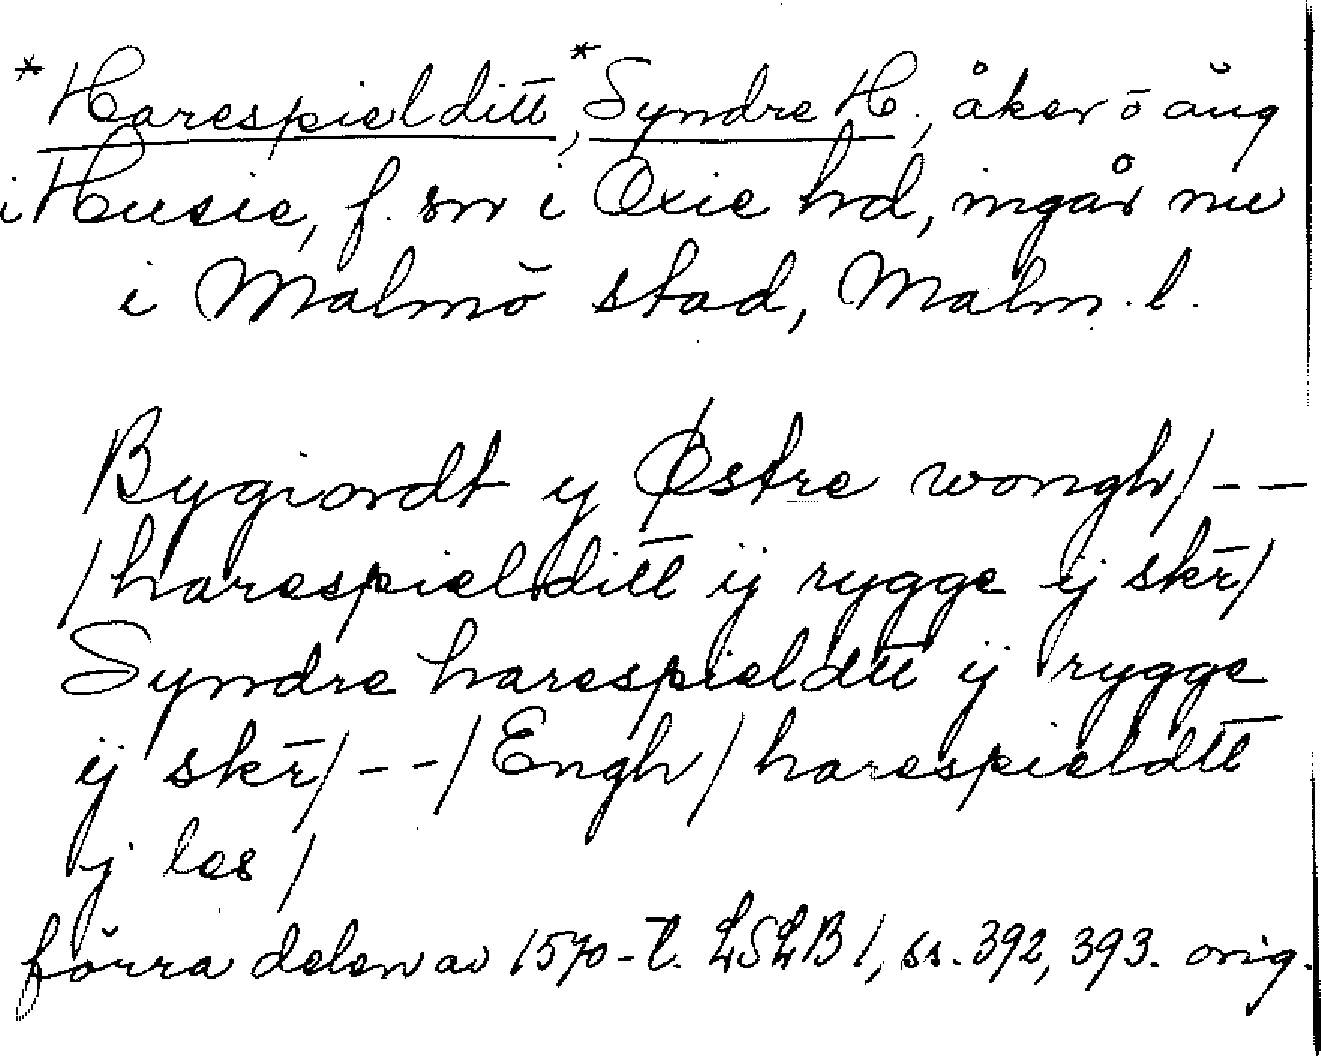 *Harespiel ditt̄, *Syndre H., åker o äng
i Husie, f. sn i Oxie hd, ingår nu
i Malmö stad, Malm. l.
Bygiordt y Østre wongh/ - -
/harespiel ditt̄ ij rygge ij skr̄/
Syndre harespieldtt̄ ij rygge
ij skr̄/ - - / Engh / harespieldtt̄
ij les /
förra delen av 1570-t. LSLB 1, ss. 392, 393. orig.